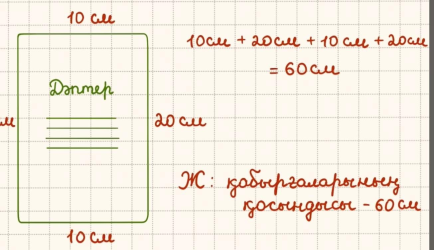 10 см
10см + 20см + 10 см + 20см
= 60см
Дәптер
м
20 см
Ж: қабырғаларының
қосындысы - 60 см
10 см